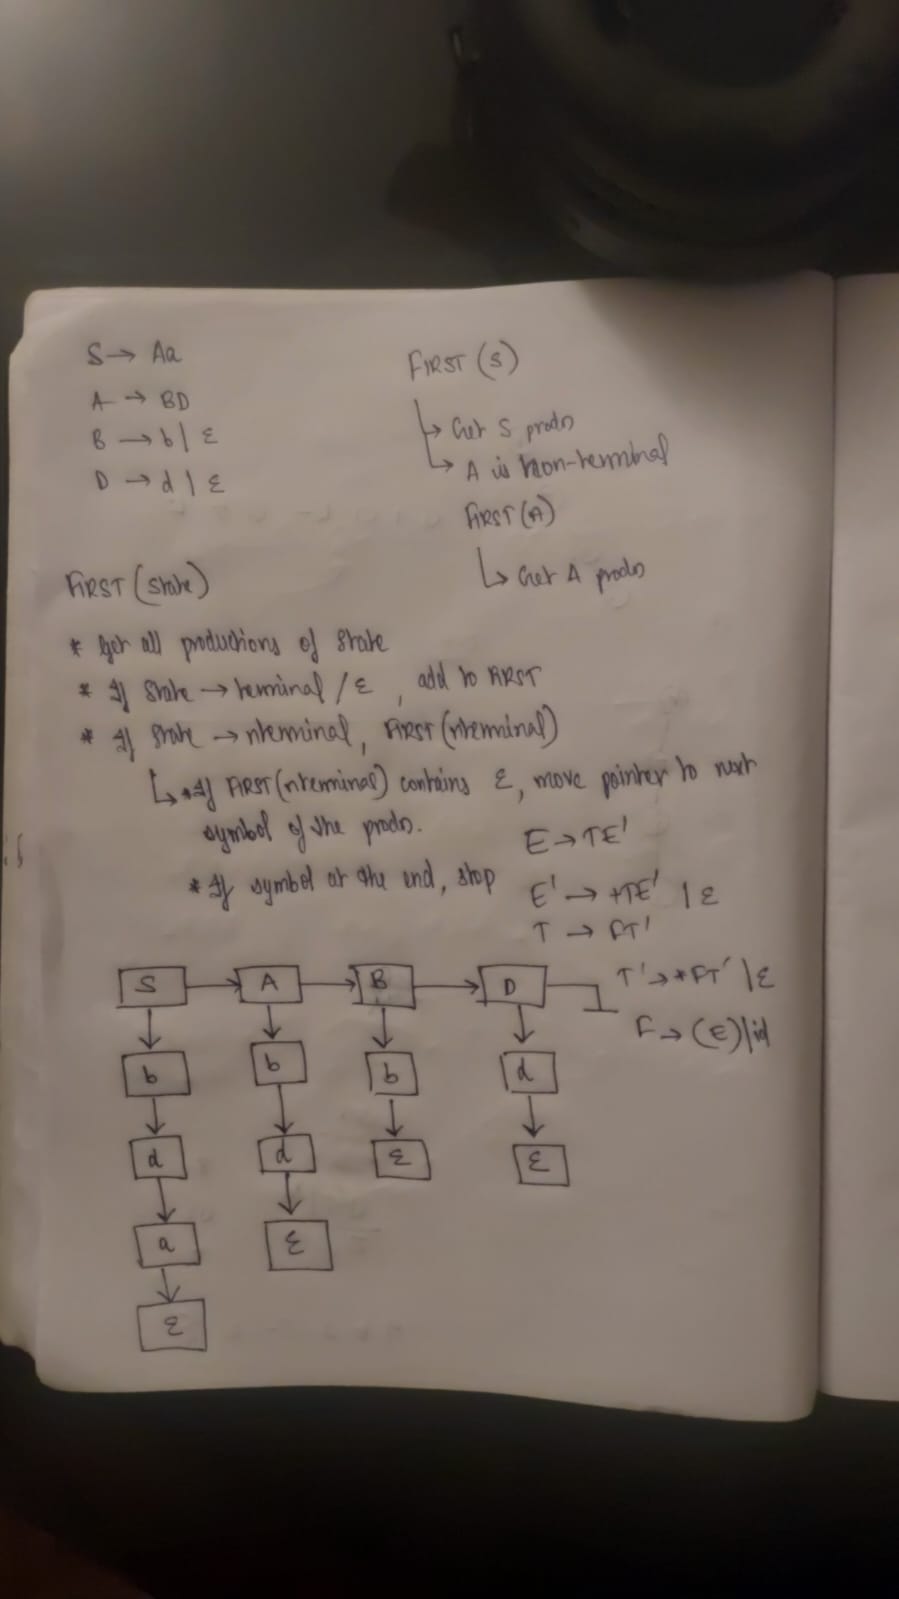 S → Aa
A → BD
B → b | ε
D → d | ε
FIRST (S)
↳ Get S prodn
↳ A is non-terminal
FIRST (A)
↳ Get A prodn
FIRST (State)
* get all productions of state
* If state → terminal / ε , add to FIRST
* If state → nterminal, FIRST (nterminal)
↳ * If FIRST (nterminal) contains ε, move pointer to next
symbol of the prodn.
* If symbol at the end, stop
E → TE'
E' → +TE' | ε
T → FT'
T' → *FT' | ε
F → (E) | id
S → A → B → D
b b b d
d d ε ε
a ε
ε